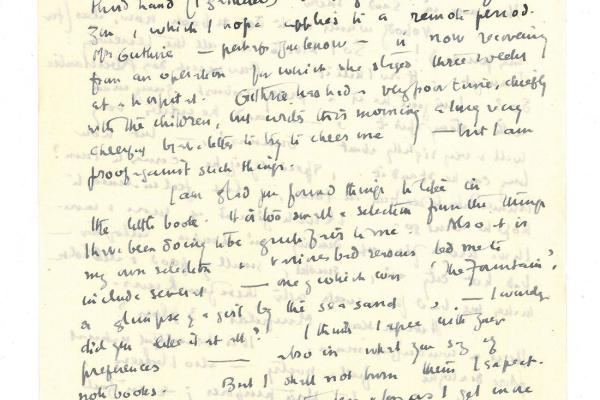 third hand
you, which I hope applies to a remote period.
Mrs Guthrie — perhaps you know — is now recovering
from an operation for which she stayed three weeks
at a hospital. Guthrie has had a very poor time, chiefly
with the children, but writes this morning a long very
cheery letter to try to cheer me — but I am
proof against such things.
I am glad you found things to like in
the little book. It is too small a selection from the things
I have been doing to be quite fair to me. Also it is
my own selection & various bad reasons led me to
include several — one of which was 'The Fountain',
a glimpse of a girl by the sea sand — I wonder
did you like it at all? I think I agree with your
preferences — also in what you say of
note books. But I shall not burn them I expect.
I get more